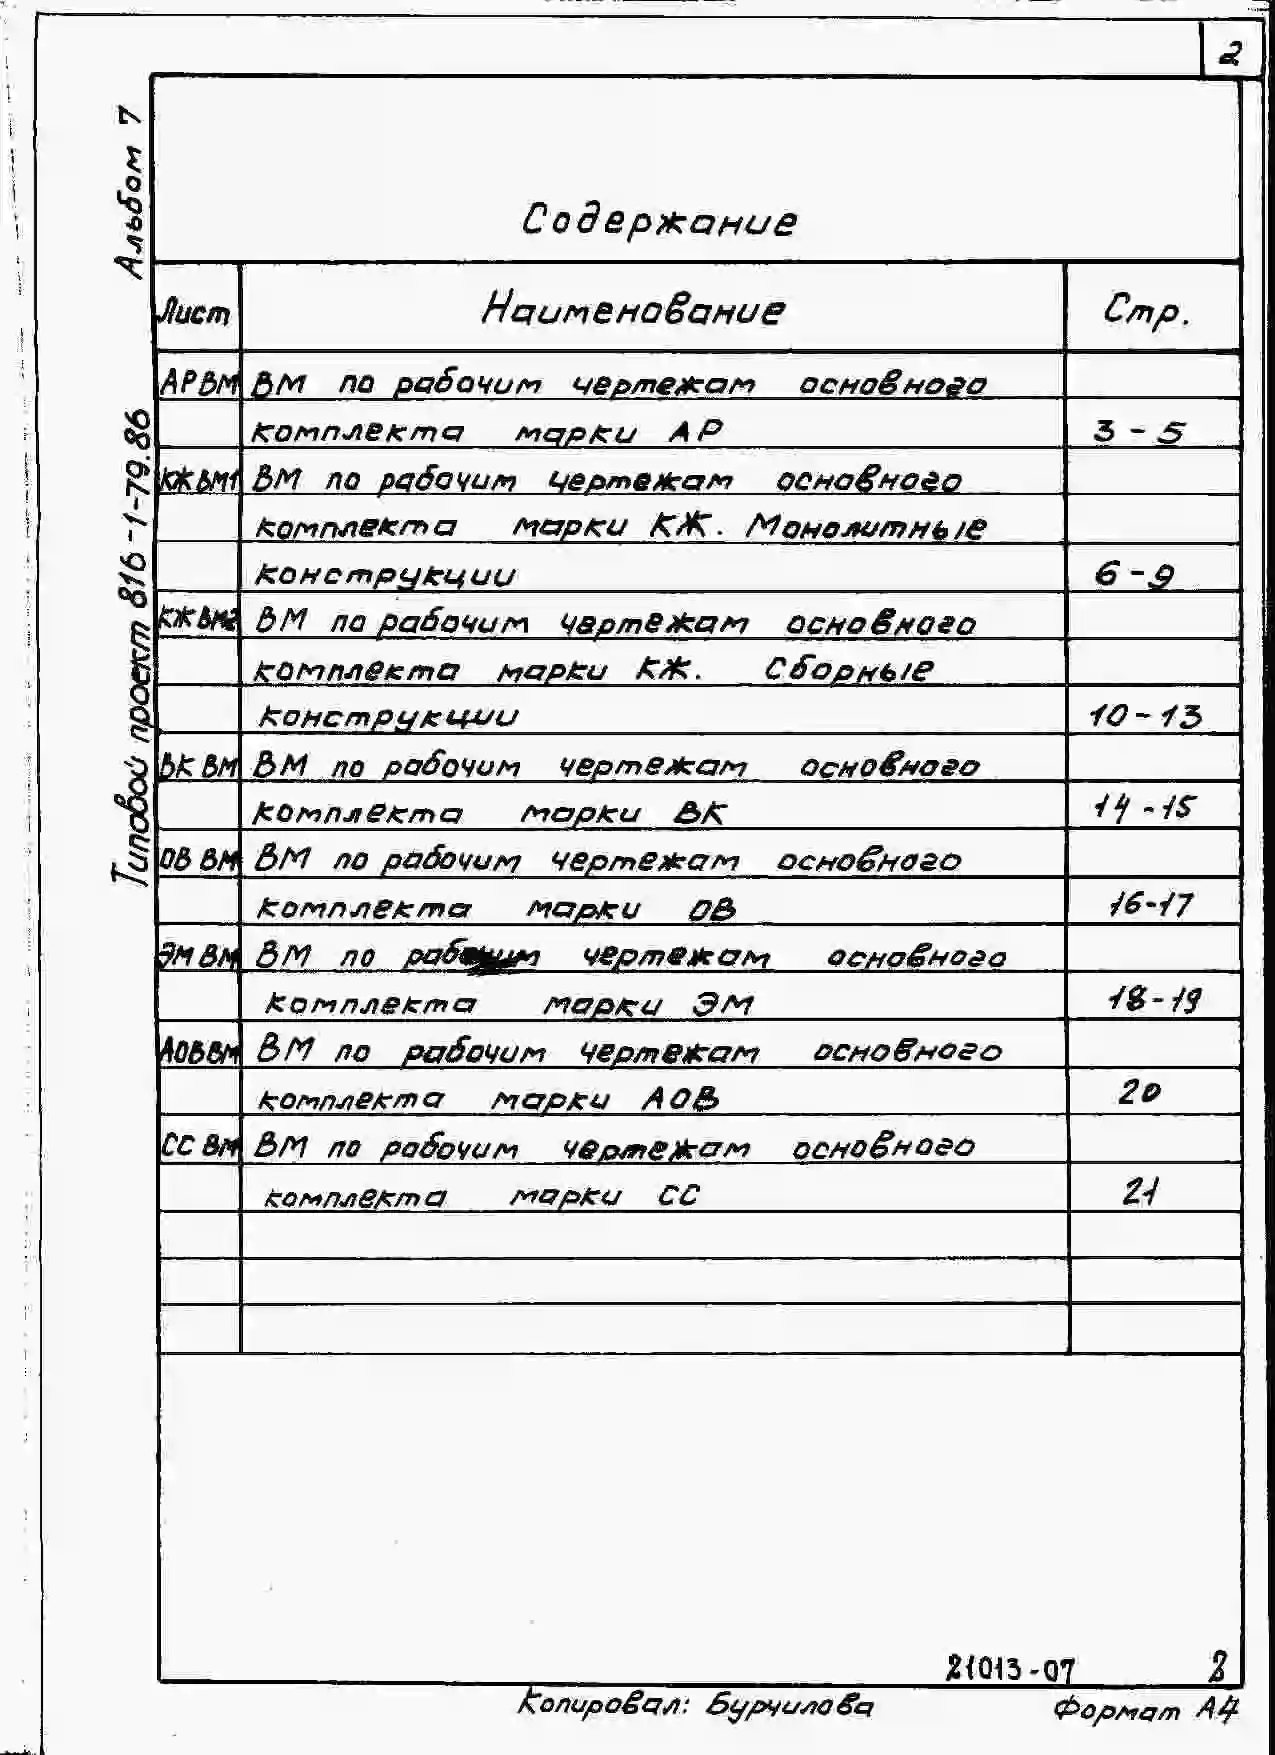 2
Альбом 7
Типовой проект 816-1-79.86
Содержание
Лист Наименование Стр.
АР ВМ ВМ по рабочим чертежам основного
комплекта марки АР 3-5
КЖ ВМ1 ВМ по рабочим чертежам основного
комплекта марки КЖ. Монолитные
конструкции 6-9
КЖ ВМ2 ВМ по рабочим чертежам основного
комплекта марки КЖ. Сборные
конструкции 10-13
ВК ВМ ВМ по рабочим чертежам основного
комплекта марки ВК 14-15
ОВ ВМ ВМ по рабочим чертежам основного
комплекта марки ОВ 16-17
ЭМ ВМ ВМ по рабочим чертежам основного
комплекта марки ЭМ 18-19
АОВ ВМ ВМ по рабочим чертежам основного
комплекта марки АОВ 20
СС ВМ ВМ по рабочим чертежам основного
комплекта марки СС 21
21013-07 2
Копировал: Бурчилова Формат А4